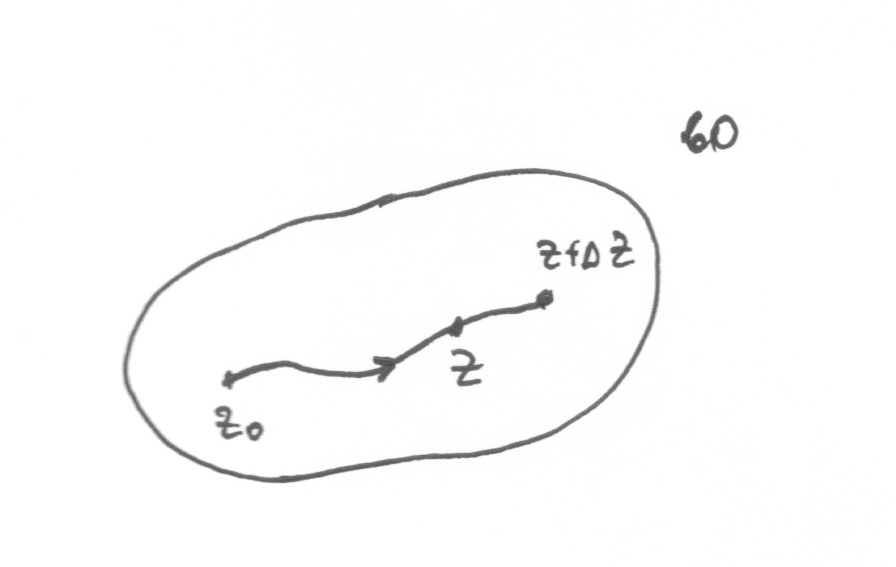 60
z+Δz
z
z0